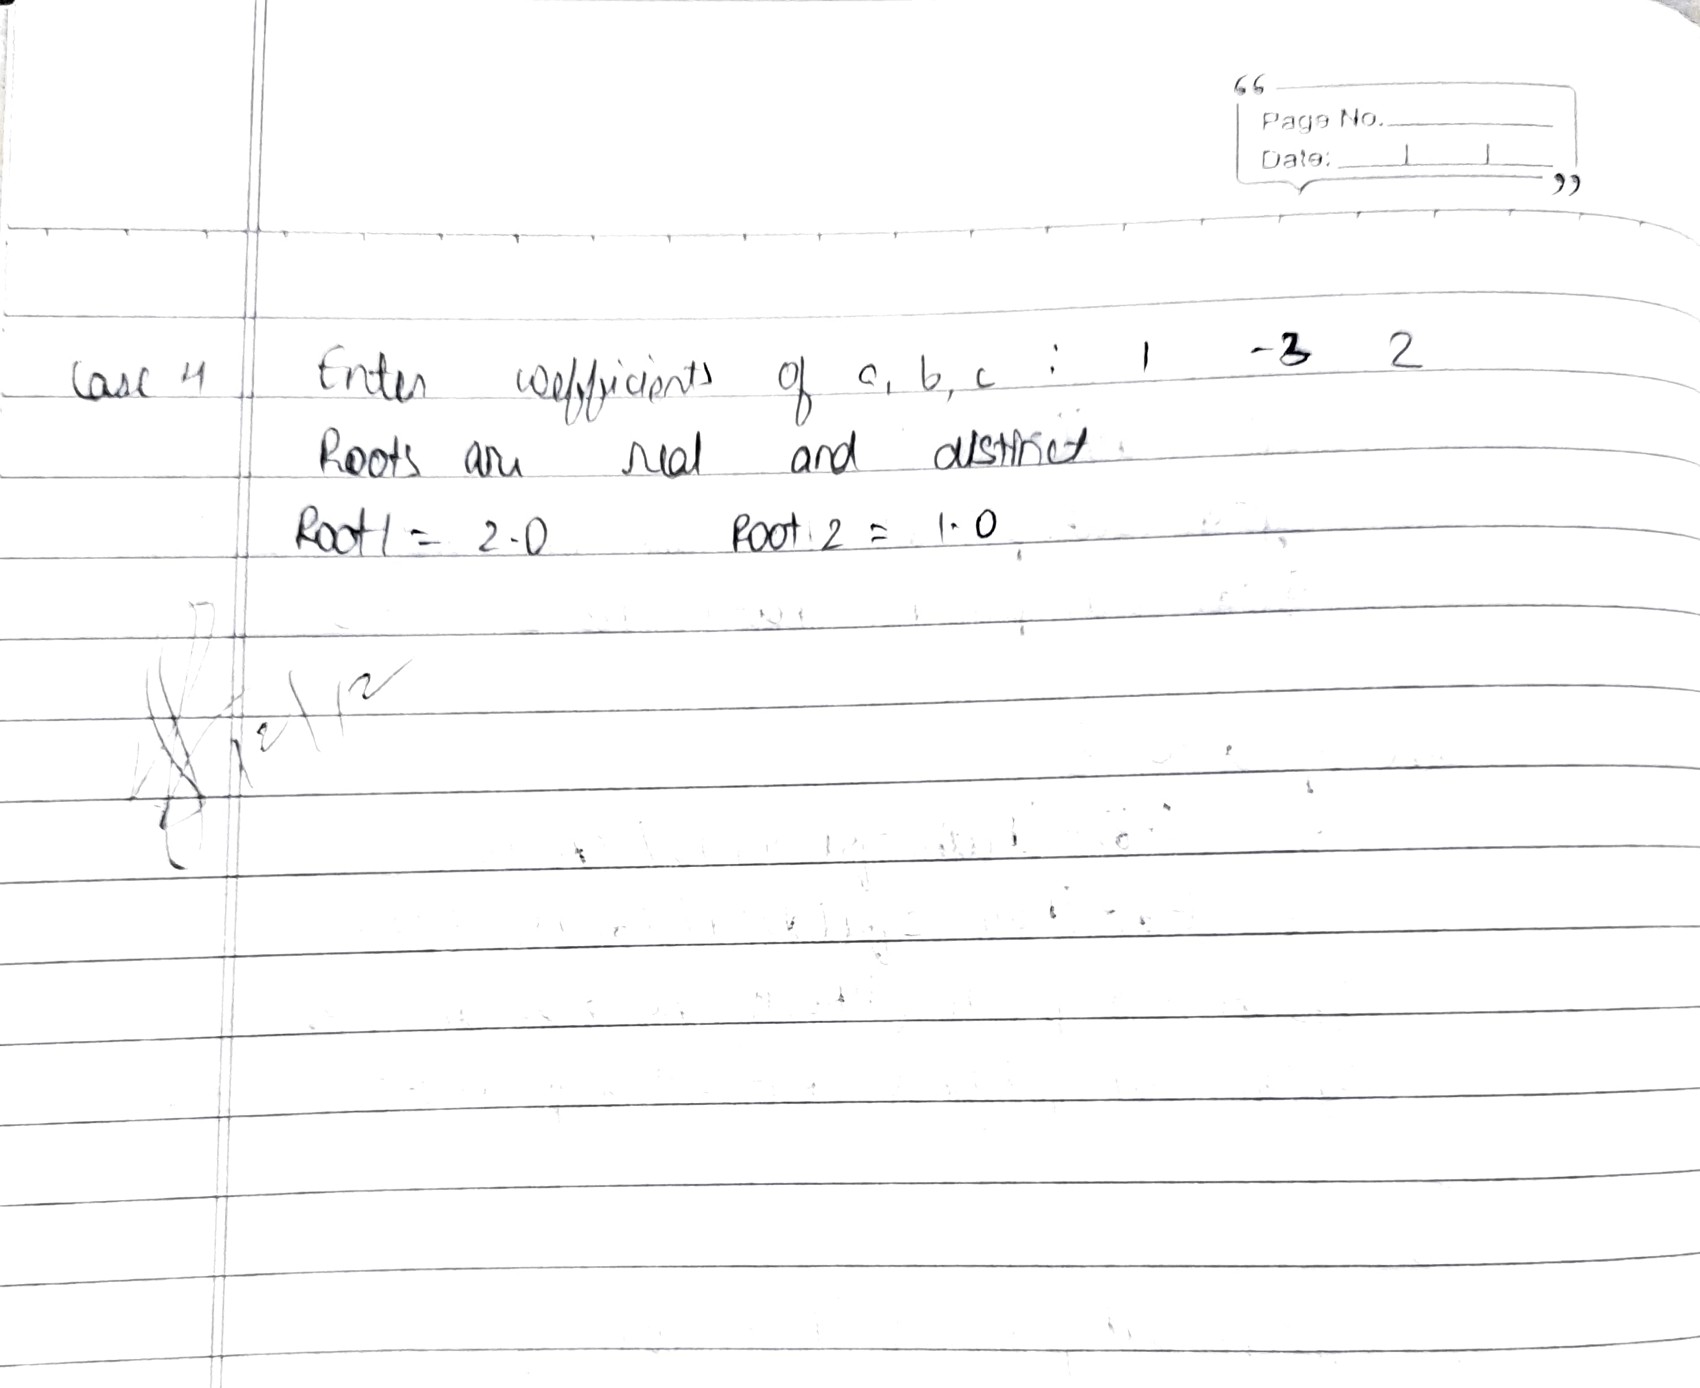 “
Page No.
Date:
”
Case 4 Enter coefficients of a, b, c : 1 -3 2
Roots are real and distinct
Root 1 = 2.0 Root 2 = 1.0